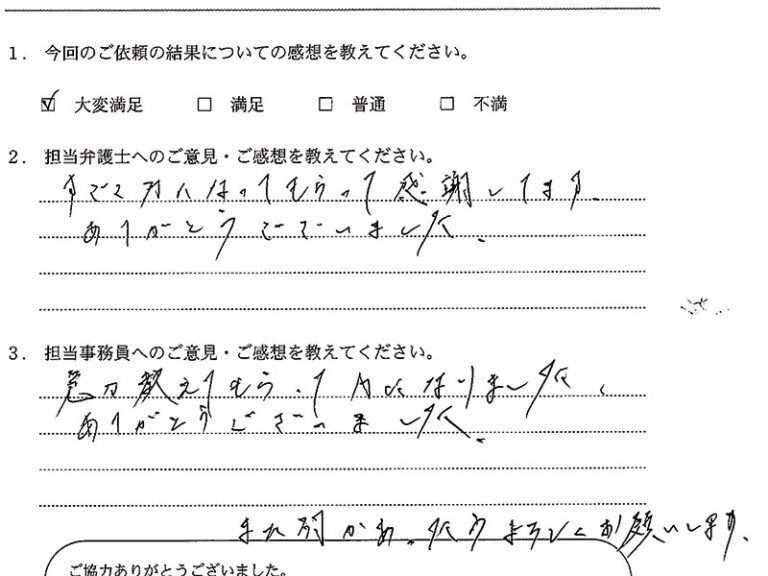 1. 今回のご依頼の結果についての感想を教えてください。
☑ 大変満足 □ 満足 □ 普通 □ 不満
2. 担当弁護士へのご意見・ご感想を教えてください。
力になってもらって感謝してます。
ありがとうございました。
3. 担当事務員へのご意見・ご感想を教えてください。
教えてもらって力になりました、
ありがとうございました。
また何かあったらよろしくお願いします。
ご協力ありがとうございました。